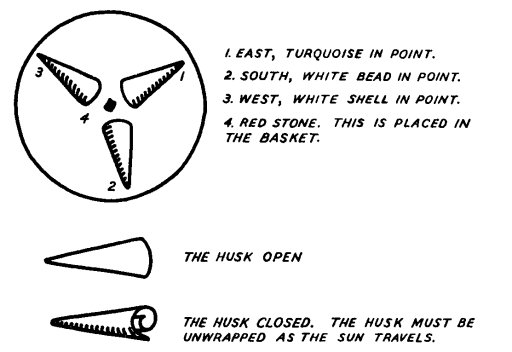 3
1
4
2
1. EAST, TURQUOISE IN POINT.
2. SOUTH, WHITE BEAD IN POINT.
3. WEST, WHITE SHELL IN POINT.
4. RED STONE. THIS IS PLACED IN
THE BASKET.
THE HUSK OPEN
THE HUSK CLOSED. THE HUSK MUST BE
UNWRAPPED AS THE SUN TRAVELS.